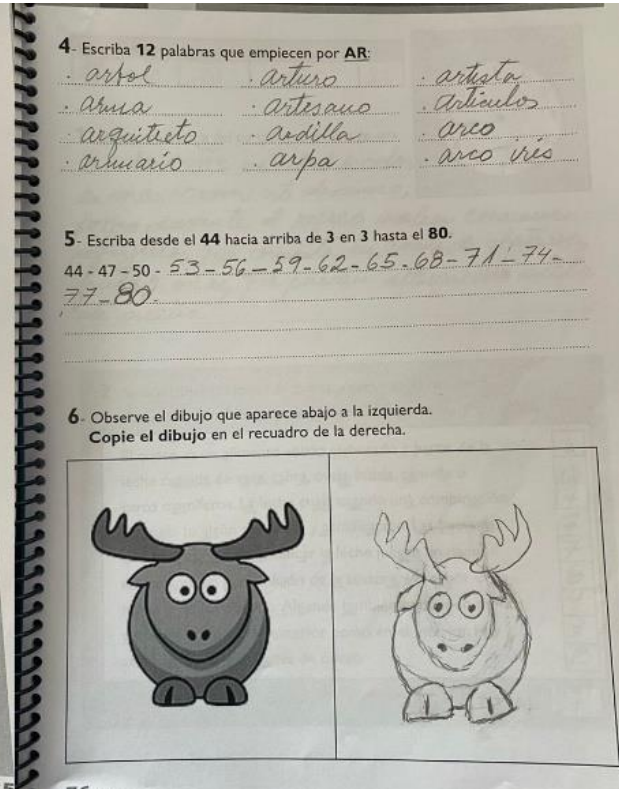 4- Escriba 12 palabras que empiecen por AR:
. arbol . arturo . artista
. arma . artesano . articulos
. arquitecto . ardilla . arco
. armario . arpa . arco iris
5- Escriba desde el 44 hacia arriba de 3 en 3 hasta el 80.
44 - 47 - 50 - 53 - 56 - 59 - 62 - 65 - 68 - 71 - 74 -
77 - 80.
6- Observe el dibujo que aparece abajo a la izquierda.
Copie el dibujo en el recuadro de la derecha.